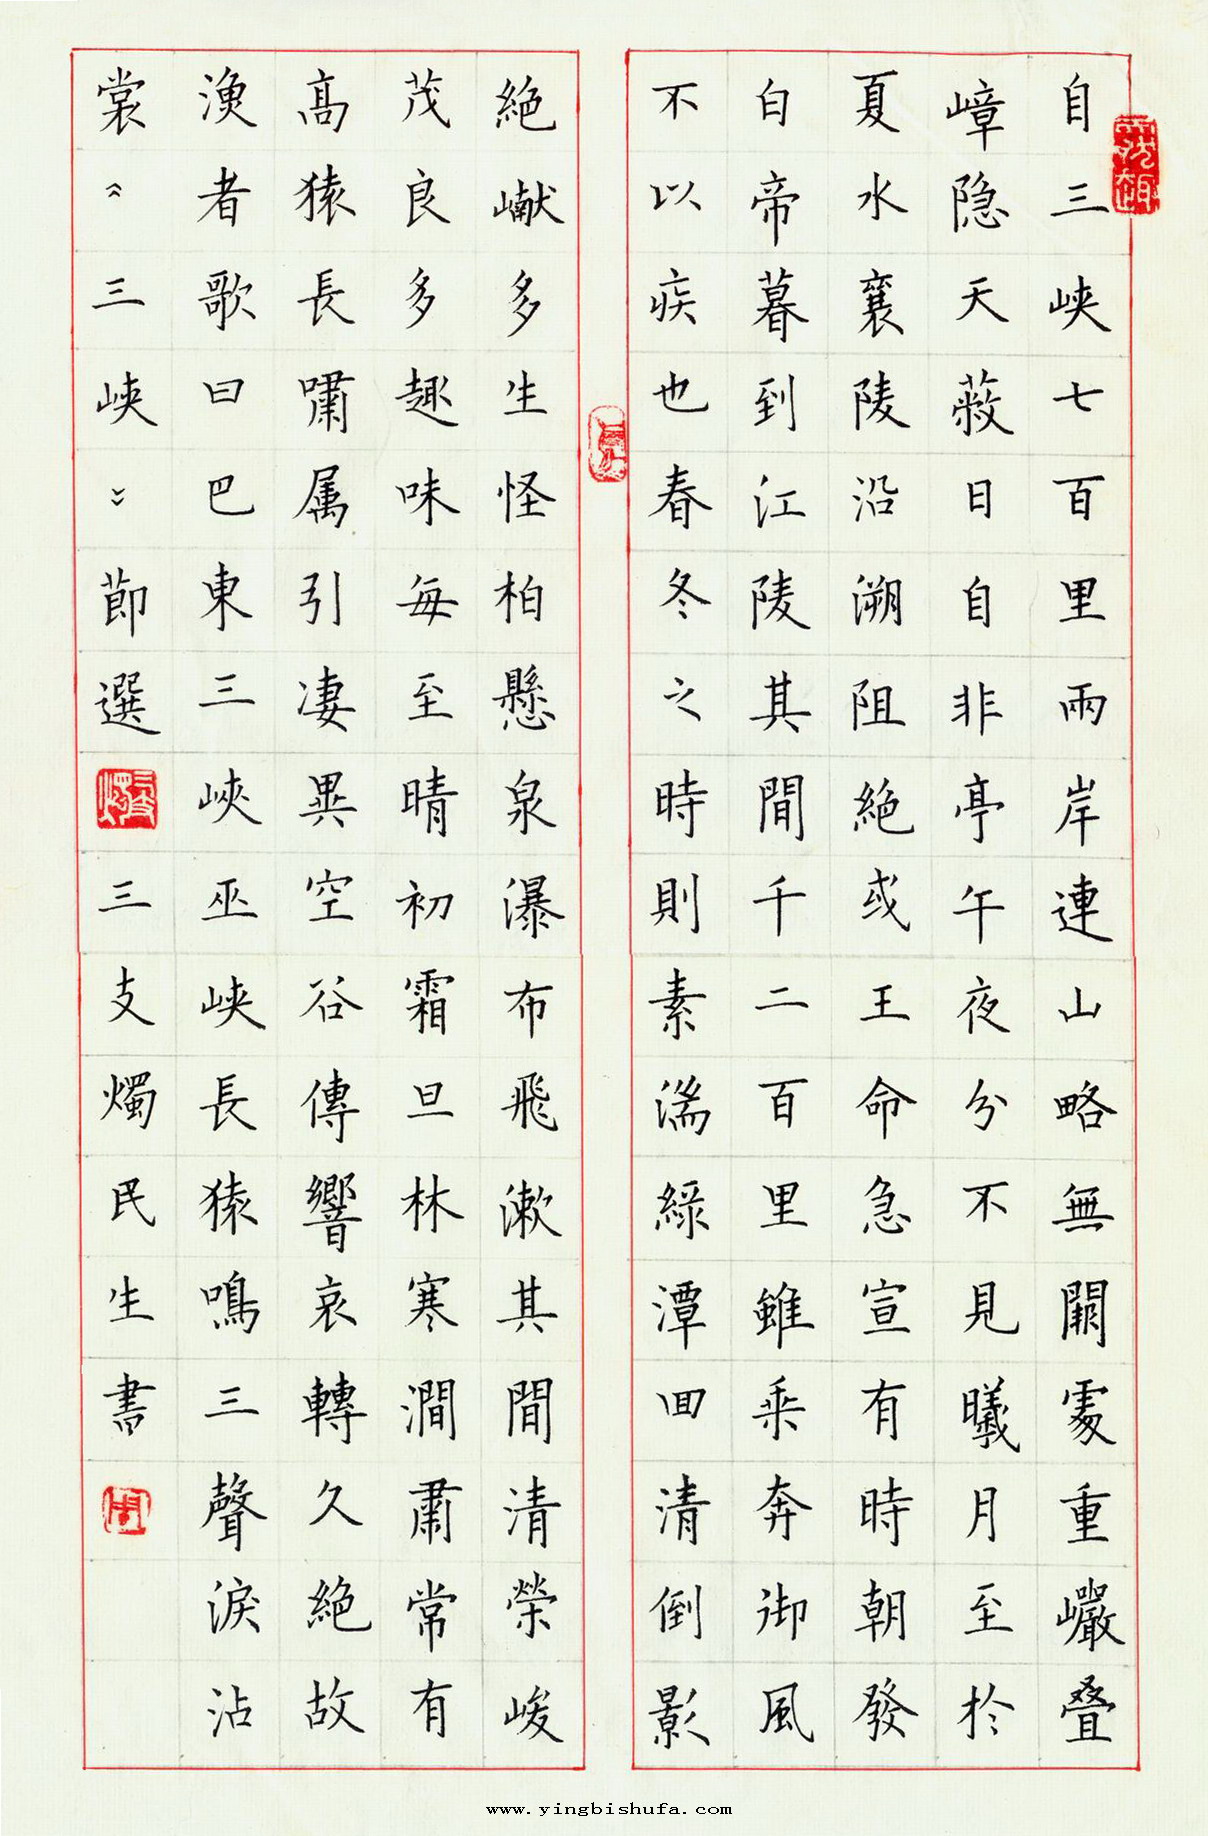 自三峡七百里兩岸連山略無闕處重巗叠
嶂隐天蔽日自非亭午夜分不見曦月至於
夏水襄陵沿溯阻絶或王命急宣有時朝發
白帝暮到江陵其間千二百里雖乘奔御風
不以疾也春冬之時則素湍綠潭回清倒影
絶巘多生怪柏懸泉瀑布飛漱其間清榮峻
茂良多趣味每至晴初霜旦林寒澗肅常有
高猿長嘯属引凄異空谷傳響哀轉久絶故
漁者歌曰巴東三峽巫峡長猿鳴三聲淚沾
裳《三峡》節選三支燭民生書
www.yingbishufa.com